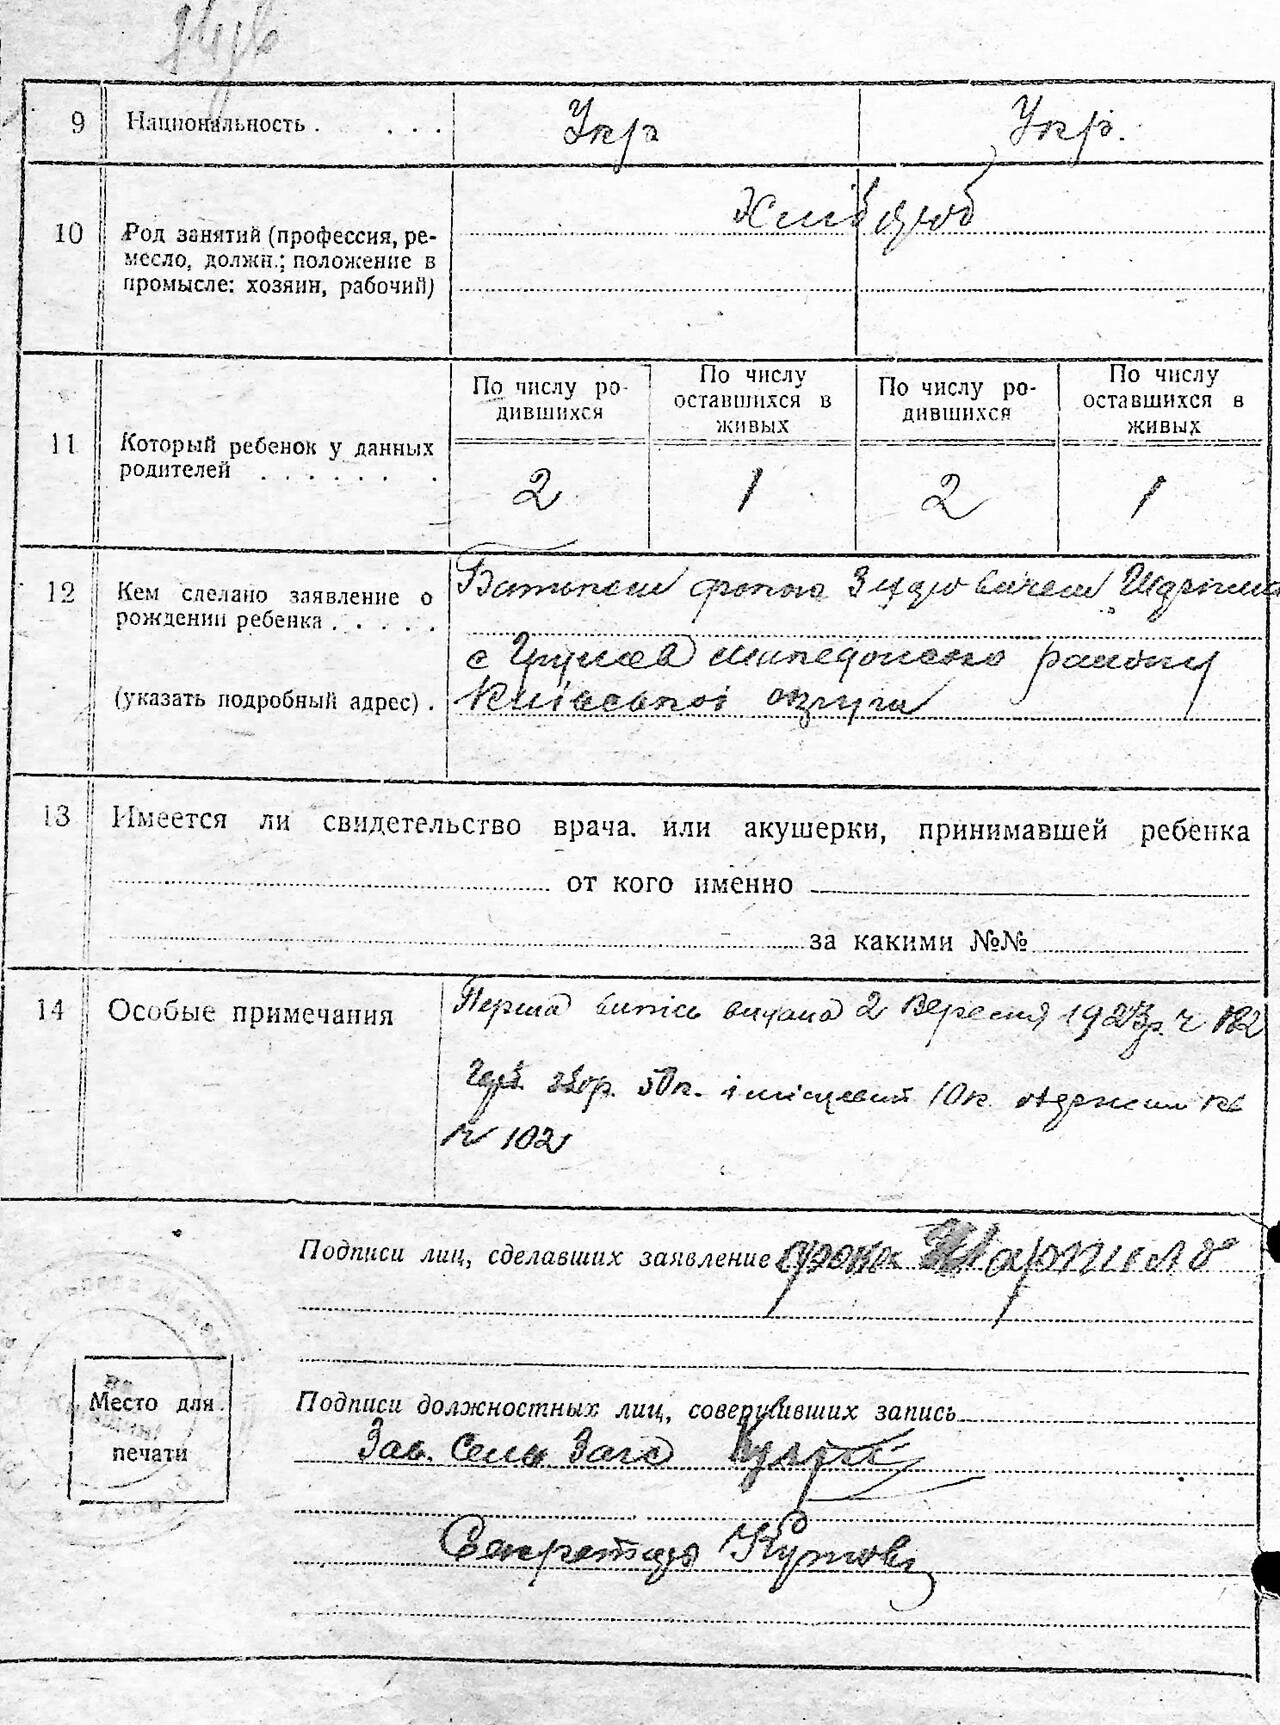 9 Национальность . . . . Укр Укр.
10 Род занятий (профессия, ре-
месло, должн.; положение в
промысле: хозяин, рабочий)
Хлібороб
11 Который ребенок у данных
родителей . . . . . . .
По числу ро-
дившихся
По числу
оставшихся в
живых
По числу ро-
дившихся
По числу
оставшихся в
живых
2 1 2 1
12 Кем сделано заявление о
рождении ребенка . . . . .
(указать подробный адрес) .
Батьком
с району
Київської округи
13 Имеется ли свидетельство врача. или акушерки, принимавшей ребенка
от кого именно
за какими №№
14 Особые примечания
Перша випись видана 2 Вересня
збор. 50к. і місцевий 10к.
ч 102
Подписи лиц, сделавших заявление
Место для
печати
Подписи должностных лиц, совершивших запись
Зав. Сель Загс
Секретарь